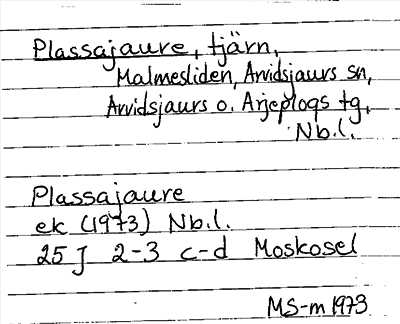 Plassajaure, tjärn,
Malmesliden, Arvidsjaurs sn,
Arvidsjaurs o. Arjeplogs tg,
Nb.l.
Plassajaure
ek (1973) Nb.l.
25 J 2-3 c-d Moskosel
MS-m 1973